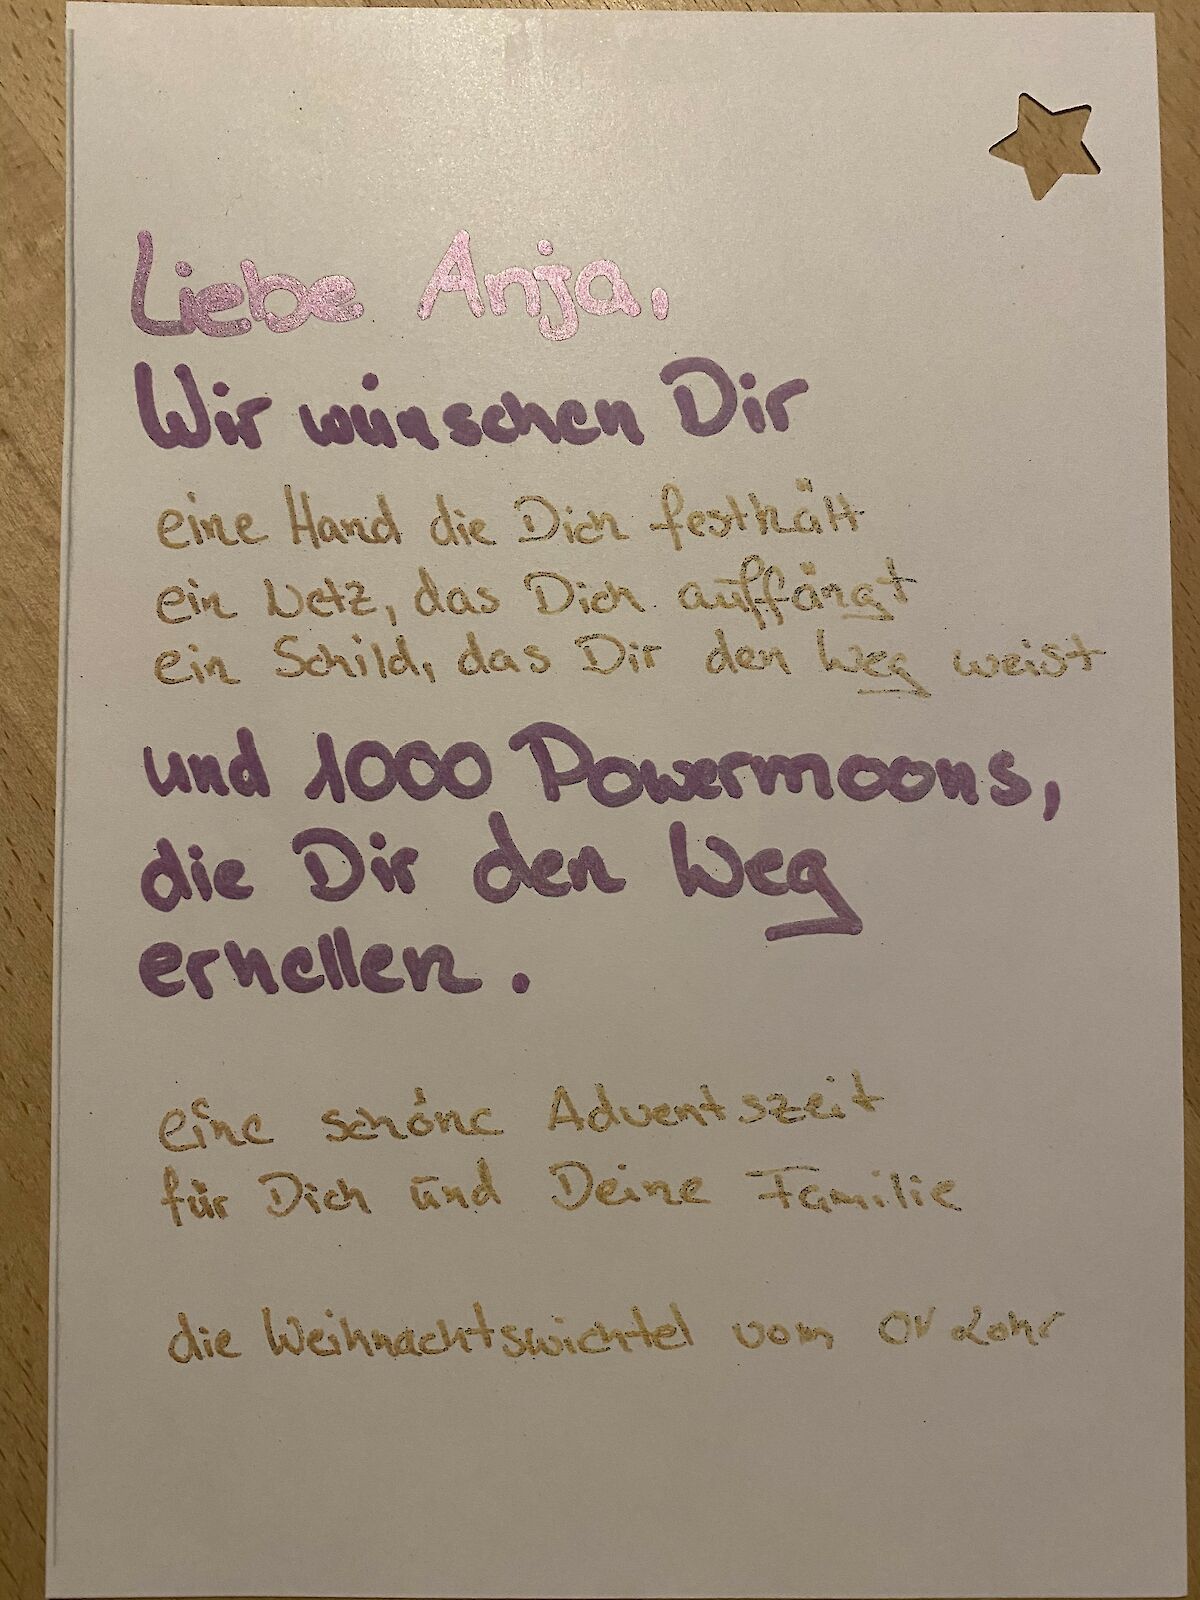 Liebe Anja,
Wir wünschen Dir
eine Hand die Dich festhält
ein Netz, das Dich auffängt
ein Schild, das Dir den Weg weist
und 1000 Powermoons,
die Dir den Weg
erhellen.
eine schöne Adventszeit
für Dich und Deine Familie
die Weihnachtswichtel vom OV Lohr